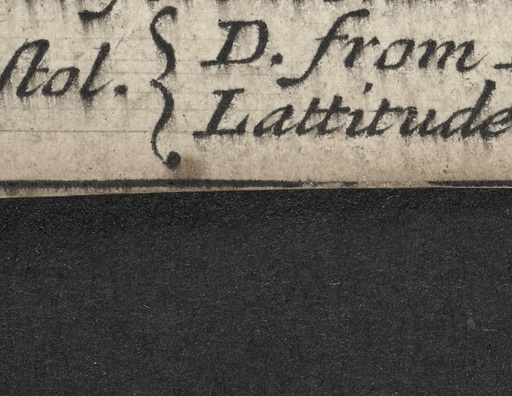 ſtol. { D. from
Lattitude